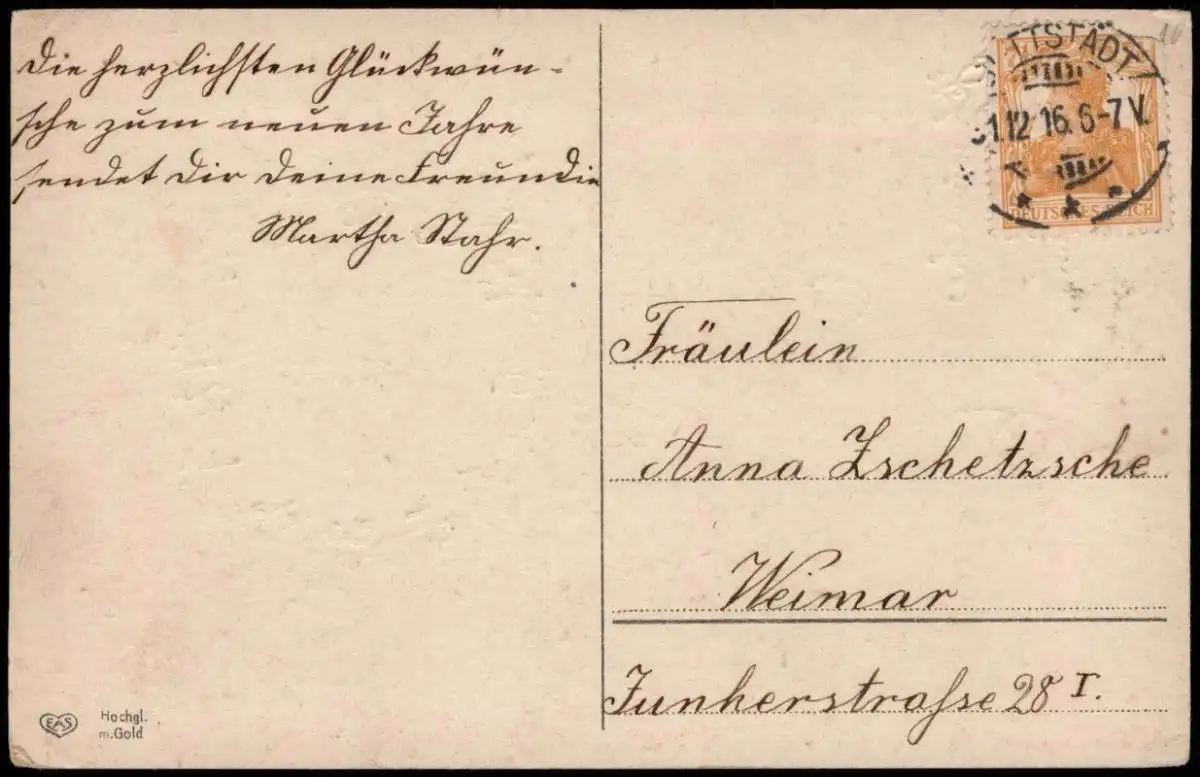 Die herzlichsten Glückwün-
sche zum neuen Jahre
sendet Dir Deine Freundin
Martha Stahr.
TTSTÄDT
31.12 16. 6-7 V.
DEUTSCHES REICH
Fräulein
Anna Zschetzsche
Weimar
Junkerstraße 28 I.
EAS
Hochgl.
m. Gold